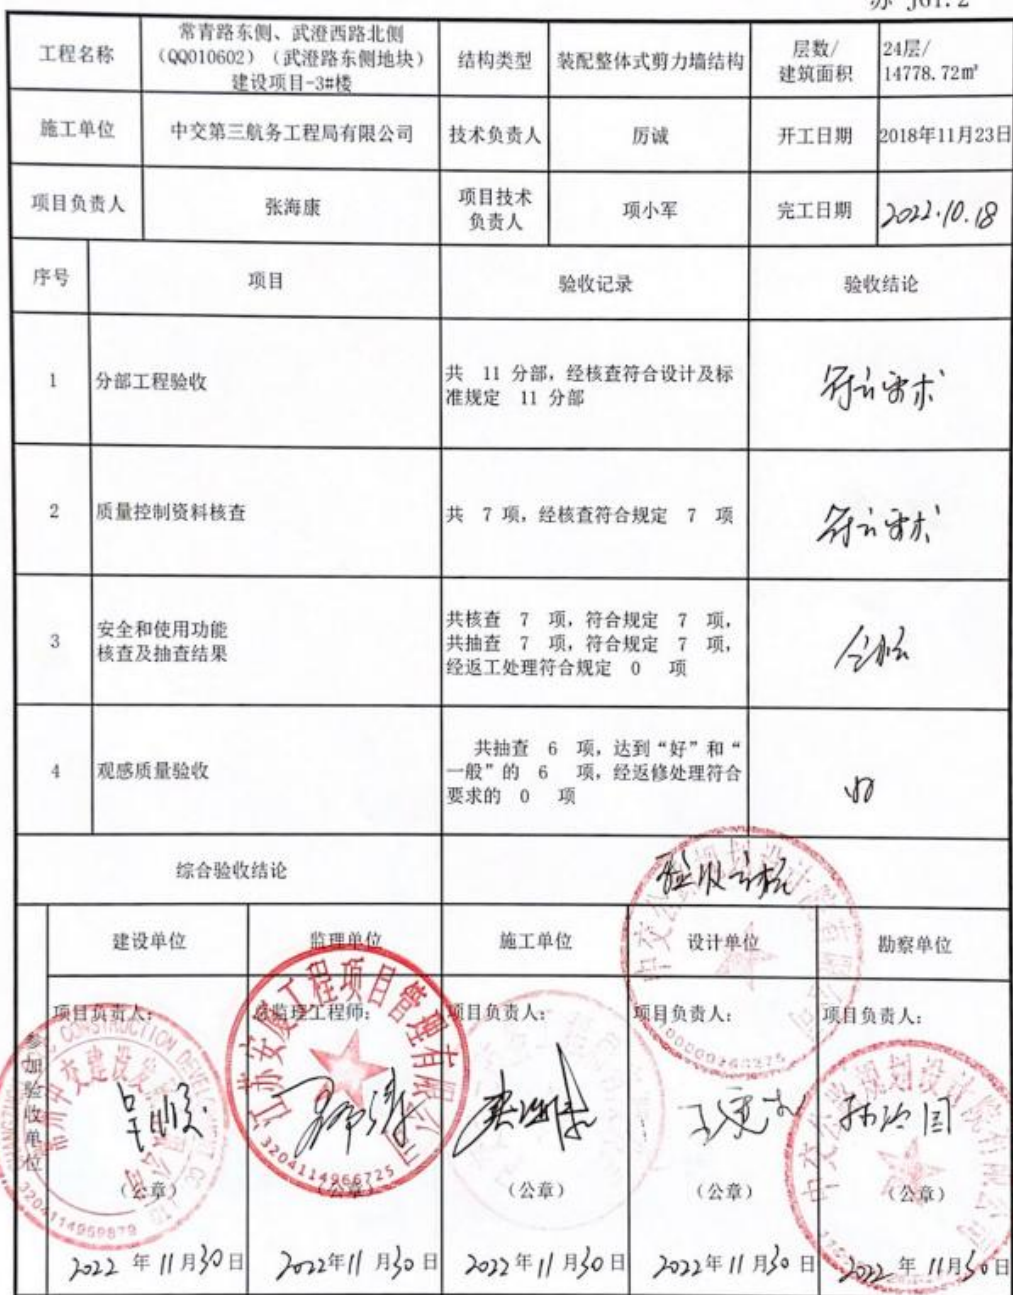 苏 J01.2
工程名称
常青路东侧、武澄西路北侧
（QQ010602）（武澄路东侧地块）
建设项目-3#楼
结构类型
装配整体式剪力墙结构
层数/
建筑面积
24层/
14778.72㎡
施工单位
中交第三航务工程局有限公司
技术负责人
厉诚
开工日期
2018年11月23日
项目负责人
张海康
项目技术
负责人
项小军
完工日期
2022.10.18
序号
项目
验收记录
验收结论
1
分部工程验收
共 11 分部，经核查符合设计及标
准规定 11 分部
符合要求
2
质量控制资料核查
共 7 项，经核查符合规定 7 项
符合要求
3
安全和使用功能
核查及抽查结果
共核查 7 项，符合规定 7 项，
共抽查 7 项，符合规定 7 项，
经返工处理符合规定 0 项
合格
4
观感质量验收
共抽查 6 项，达到“好”和“
一般”的 6 项，经返修处理符合
要求的 0 项
好
综合验收结论
验收合格
参加验收单位
建设单位
监理单位
施工单位
设计单位
勘察单位
项目负责人：
总监理工程师：
项目负责人：
项目负责人：
项目负责人：
张海康
（公章）
（公章）
（公章）
（公章）
（公章）
2022 年 11月30日
2022年11月30日
2022年11月30日
2022年11月30日
2022年11月30日
江苏安厦工程项目管理有限公司
3204114966725
中交公路规划设计院有限公司
中交公路规划设计院有限公司
3204114959879